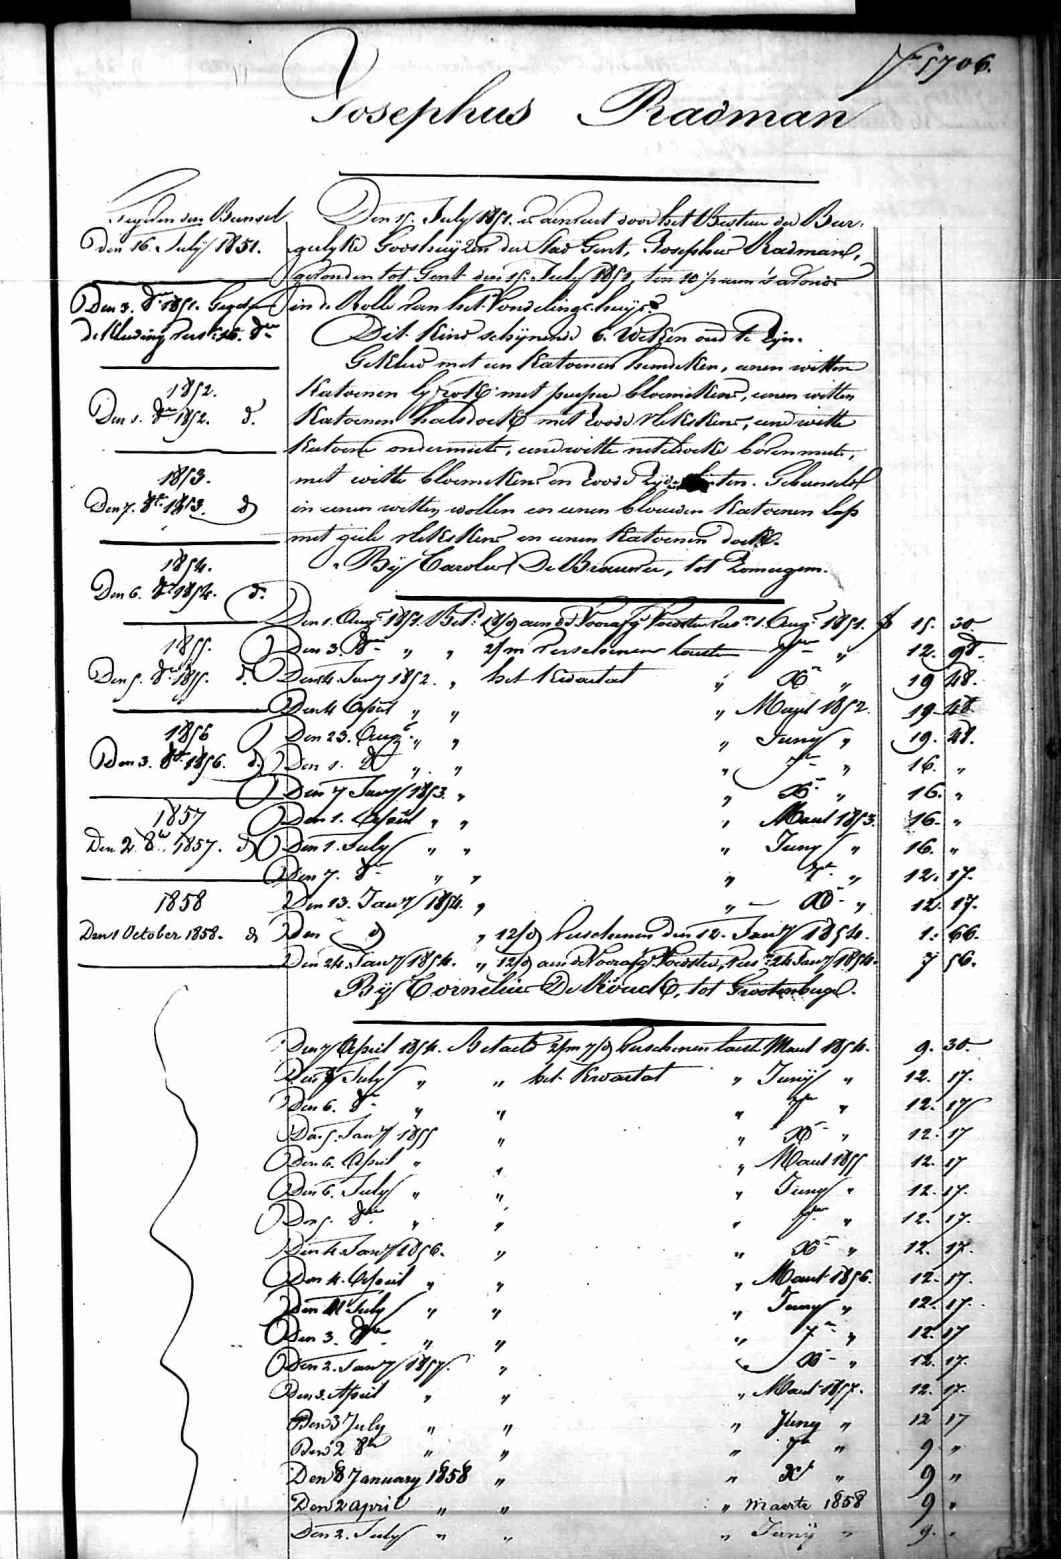 N° 1706.
Josephus Radman
Gegeven den Bunsel
Den 16. July 1851.
Den 3. 8bre 1851. Gegeven
de kleeding
1852.
Den 1. 8bre 1852. d°.
1853.
Den 7. 8bre 1853. d°
1854.
Den 6. 8bre 1854. d°.
1855.
Den 5. 8bre 1855. d°.
1856
Den 3. 8bre 1856. d°
1857
Den 2. 8bre 1857. d°
1858
Den 1 October 1858. d°
Den 15. July 1851. is aenveert door het Bestuer der Bur-
gerlyke Godshuyzen der Stad Gent, Josephus Radman,
gevonden tot Gent den 15. July 1851, ten 10 1/2 uren 's avonds
in de Rolle van het Vondelingshuys.
Dit kind schynende 6. Weken oud te Zyn.
Gekleed met een katoenen hemdeken, eenen witten
katoenen lyfrok met purpere bloemekens, eenen witten
katoenen halsdoek met roode vlekskens, eene witte
katoene ondermuts, eene witte neteldoeke bovenmuts,
met witte bloemekens en roode zyde linten. Gebunseld
in eenen witten wollen en eenen blauwen katoenen lap
met geele vlekskens en eenen katoenen doek.
By Carolus De Brauwer, tot Zomergem.
Den 1. Augt 1851. Bet. 18/d aen de Voorafg. Voedster vers. 1. Augt 1851. f 15. 30
Den 3. 8bre " " 2/m verschenen lauten 7bre " 12. 98.
Den 4. Jany 1852. " het kwartaal " Xbre " 19 48.
Den 4 April " " " Maert 1852. 19. 48
Den 23. Augt. " " " Juny " 19. 48.
Den 1. 8bre " " " 7bre " 16. "
Den 7 Jany 1853. " " Xbre " 16. "
Den 1. April " " " Maert 1853. 16. "
Den 1. July " " " Juny " 16. "
Den 7. 8bre " " " 7bre " 12. 17.
Den 13. Jany 1854. " " Xbre " 12. 17.
Den d° " 12/d verschenen den 12. Jany 1854. 1. 66.
Den 24. Jany 1854. " 12/d aen de Voorafg. Voedster, vers. 24 Jany 1854. 7 56.
By Cornelius De Kouck, tot Grootenberge.
Den 7 April 1854. Betaeld 2/m 7/d verschenen lauten Maert 1854. 9. 30
Den 7 July " " het kwartaal " Juny " 12. 17.
Den 6. 8bre " " " 7bre " 12. 17
Den 5. Jany 1855 " " Xbre " 12. 17
Den 6. April " " " Maert 1855 12. 17
Den 6. July " " " Juny " 12. 17.
Den 5. 8bre " " " 7bre " 12. 17.
Den 4. Jany 1856. " " Xbre " 12. 17.
Den 4. April " " " Maert 1856. 12. 17.
Den 4 July " " " Juny " 12. 17.
Den 3. 8bre " " " 7bre " 12. 17
Den 2. Jany 1857. " " Xbre " 12. 17.
Den 3. April " " " Maert 1857. 12. 17.
Den 3 July " " " Juny " 12 17
Den 2 8bre " " " 7bre " 9 "
Den 8 January 1858 " " Xbre " 9 "
Den 2 April " " " maerte 1858 9 "
Den 2. July " " " Juny " 9. "